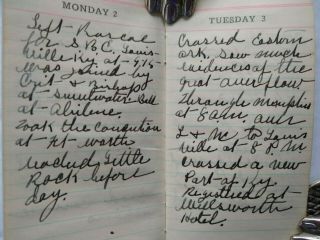 MONDAY 2
Left Rascal
for S.B.C. Louis-
ville Ky at 9/15
Was joined by
Crit & Bishop
at Sweetwater
at Abilene.
Took the
at Ft Worth
reached Little
Rock before
day.
TUESDAY 3
Crossed Eastern
Ark. Saw much
evidence of the
great overflow
Through Memphis
at 8 am, over
L & N to Louis
ville at 8 P.M
Crossed a new
Part of Ky.
Registered at
Hotel.